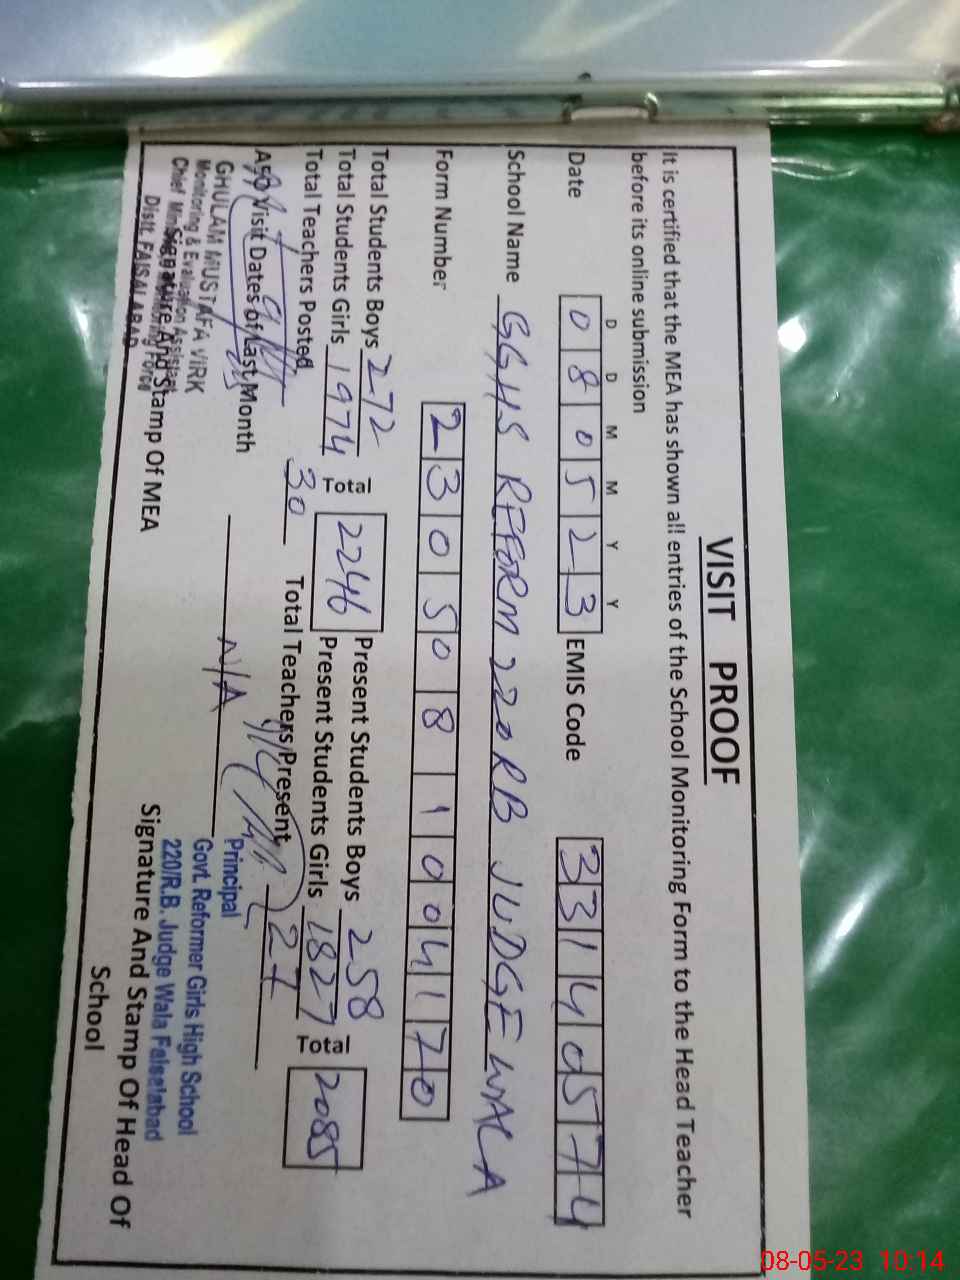 VISIT PROOF
It is certified that the MEA has shown all entries of the School Monitoring Form to the Head Teacher
before its online submission
D D M M Y Y
Date 0 8 0 5 2 3 EMIS Code 3 3 1 4 0 5 7 4
School Name GGHS REFORM 220RB JUDGE WALA
Form Number 2 3 0 5 0 8 1 0 0 4 1 7 0
Total Students Boys 272 Present Students Boys 258
Total Students Girls 1974 Total 2246 Present Students Girls 1827 Total 2085
Total Teachers Posted 30 Total Teachers Present 27
Visit Dates of Last Month N/A
GHULAM MUSTAFA VIRK
Monitoring & Evaluation Assistant
Chief Monitoring Force
Distt. FAISALABAD
Signature And Stamp Of MEA
Principal
Govt. Reformer Girls High School
220/R.B. Judge Wala Faisalabad
Signature And Stamp Of Head Of
School
08-05-23 10:14